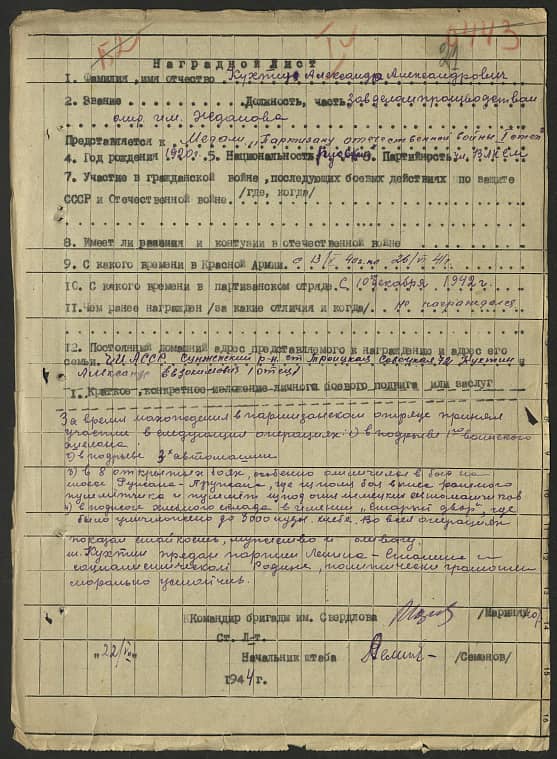 21
Наградной Лист
1. Фамилия, имя отчество Кухтин Александр Александрович
2. Звание Должность, часть Зав делопроизводством
отр. им. Жданова
Представляется к Медали "Партизану отечественной войны I степ
4. Год рождения 1920г. 5. Национальность Русский 6. Партийность чл. ВЛКСМ
7. Участие в гражданской войне, последующих боевых действиях по защите
/где, когда/
СССР и Отечественной войне
8. Имеет ли ранения и контузии в отечественной войне
9. С какого времени в Красной Армии. с 13/ 40г. по 26/ 41г.
10. С какого времени в партизанском отряде. С 10 декабря 1942 г.
11. Чем ранее награжден /за какие отличия и когда/ не награждался
12. Постоянный домашний адрес представляемого к награждению и адрес его
семьи. ЧИАССР, Сунженский р-н, ст. Троицкая, Кухтин
Александр /отец/
I. Краткое, конкретное изложение личного боевого подвига или заслуг
За время нахождения в партизанском отряде принял
участие в следующих операциях: 1) в подрыве воинского
эшелона;
2) в подрыве 3х автомашин
3) в 8 открытых боях, особенно отличился в бою на
шоссе Ружана-Пружана, где с поля боя вынес раненого
пулемётчика и пулемёт из под огня немецких автоматчиков
4) в поджоге хлебного склада в имении "Старый двор", где
было уничтожено до 3000 пудов хлеба. Во всех операциях
показал стойкость, мужество и отвагу.
т. Кухтин предан партии Ленина-Сталина и
социалистической Родине, политически грамотен
морально устойчив.
Командир бригады им. Свердлова /Маринин
Ст. Л-т.
"22/
Начальник штаба /Семенов/
1944г.